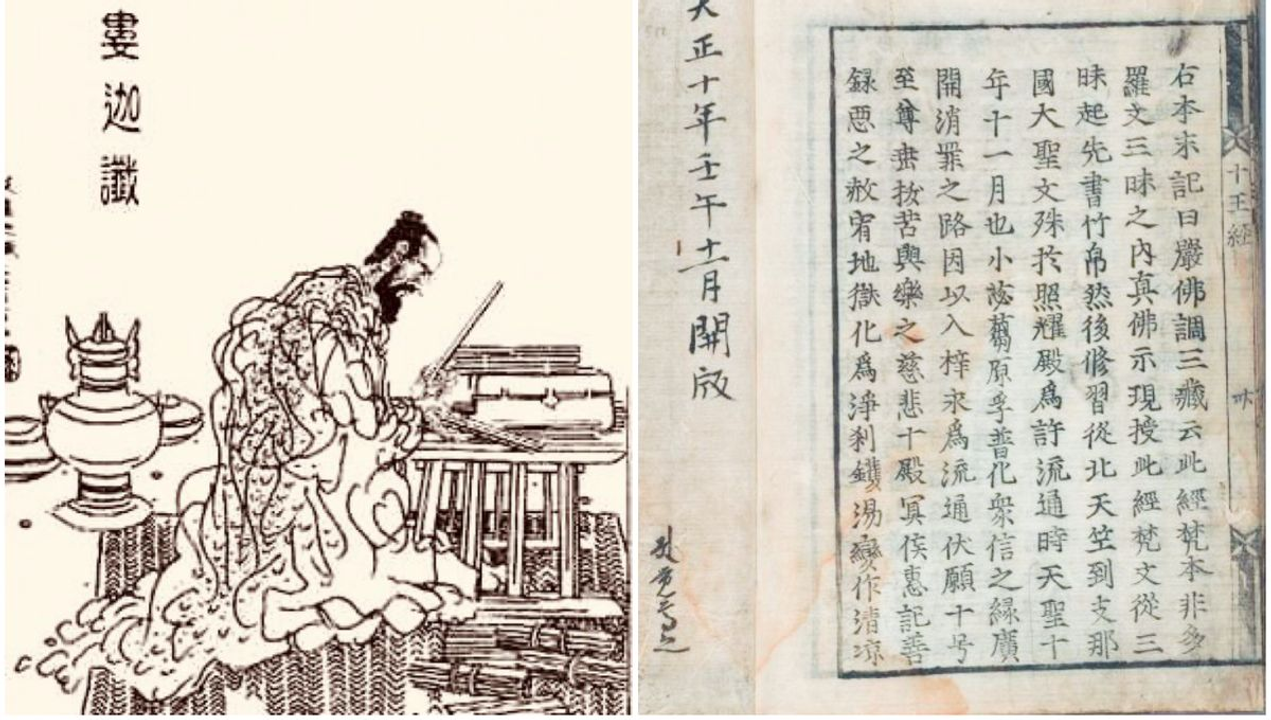 婁迦讖
十王経
右本末記曰嚴佛調三藏云此經梵本非多
羅文三昧之內真佛示現授此經梵文從三
昧起先書竹帛然後修習從北天竺到支那
國大聖文殊於照耀殿爲許流通時天聖十
年十一月也小苾蒭原孚普化衆信之緣廣
開消罪之路因以入梓求爲流通伏願十号
至尊垂拔苦與樂之慈悲十殿冥侯惠記善
録惡之赦宥地獄化爲淨刹鑊湯變作清凉
大正十年壬午十一月開版